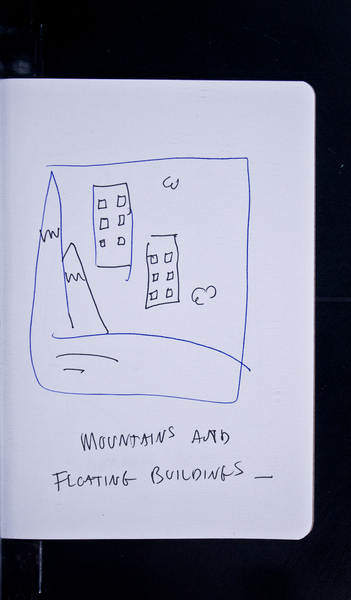 MOUNTAINS AND
FLOATING BUILDINGS _